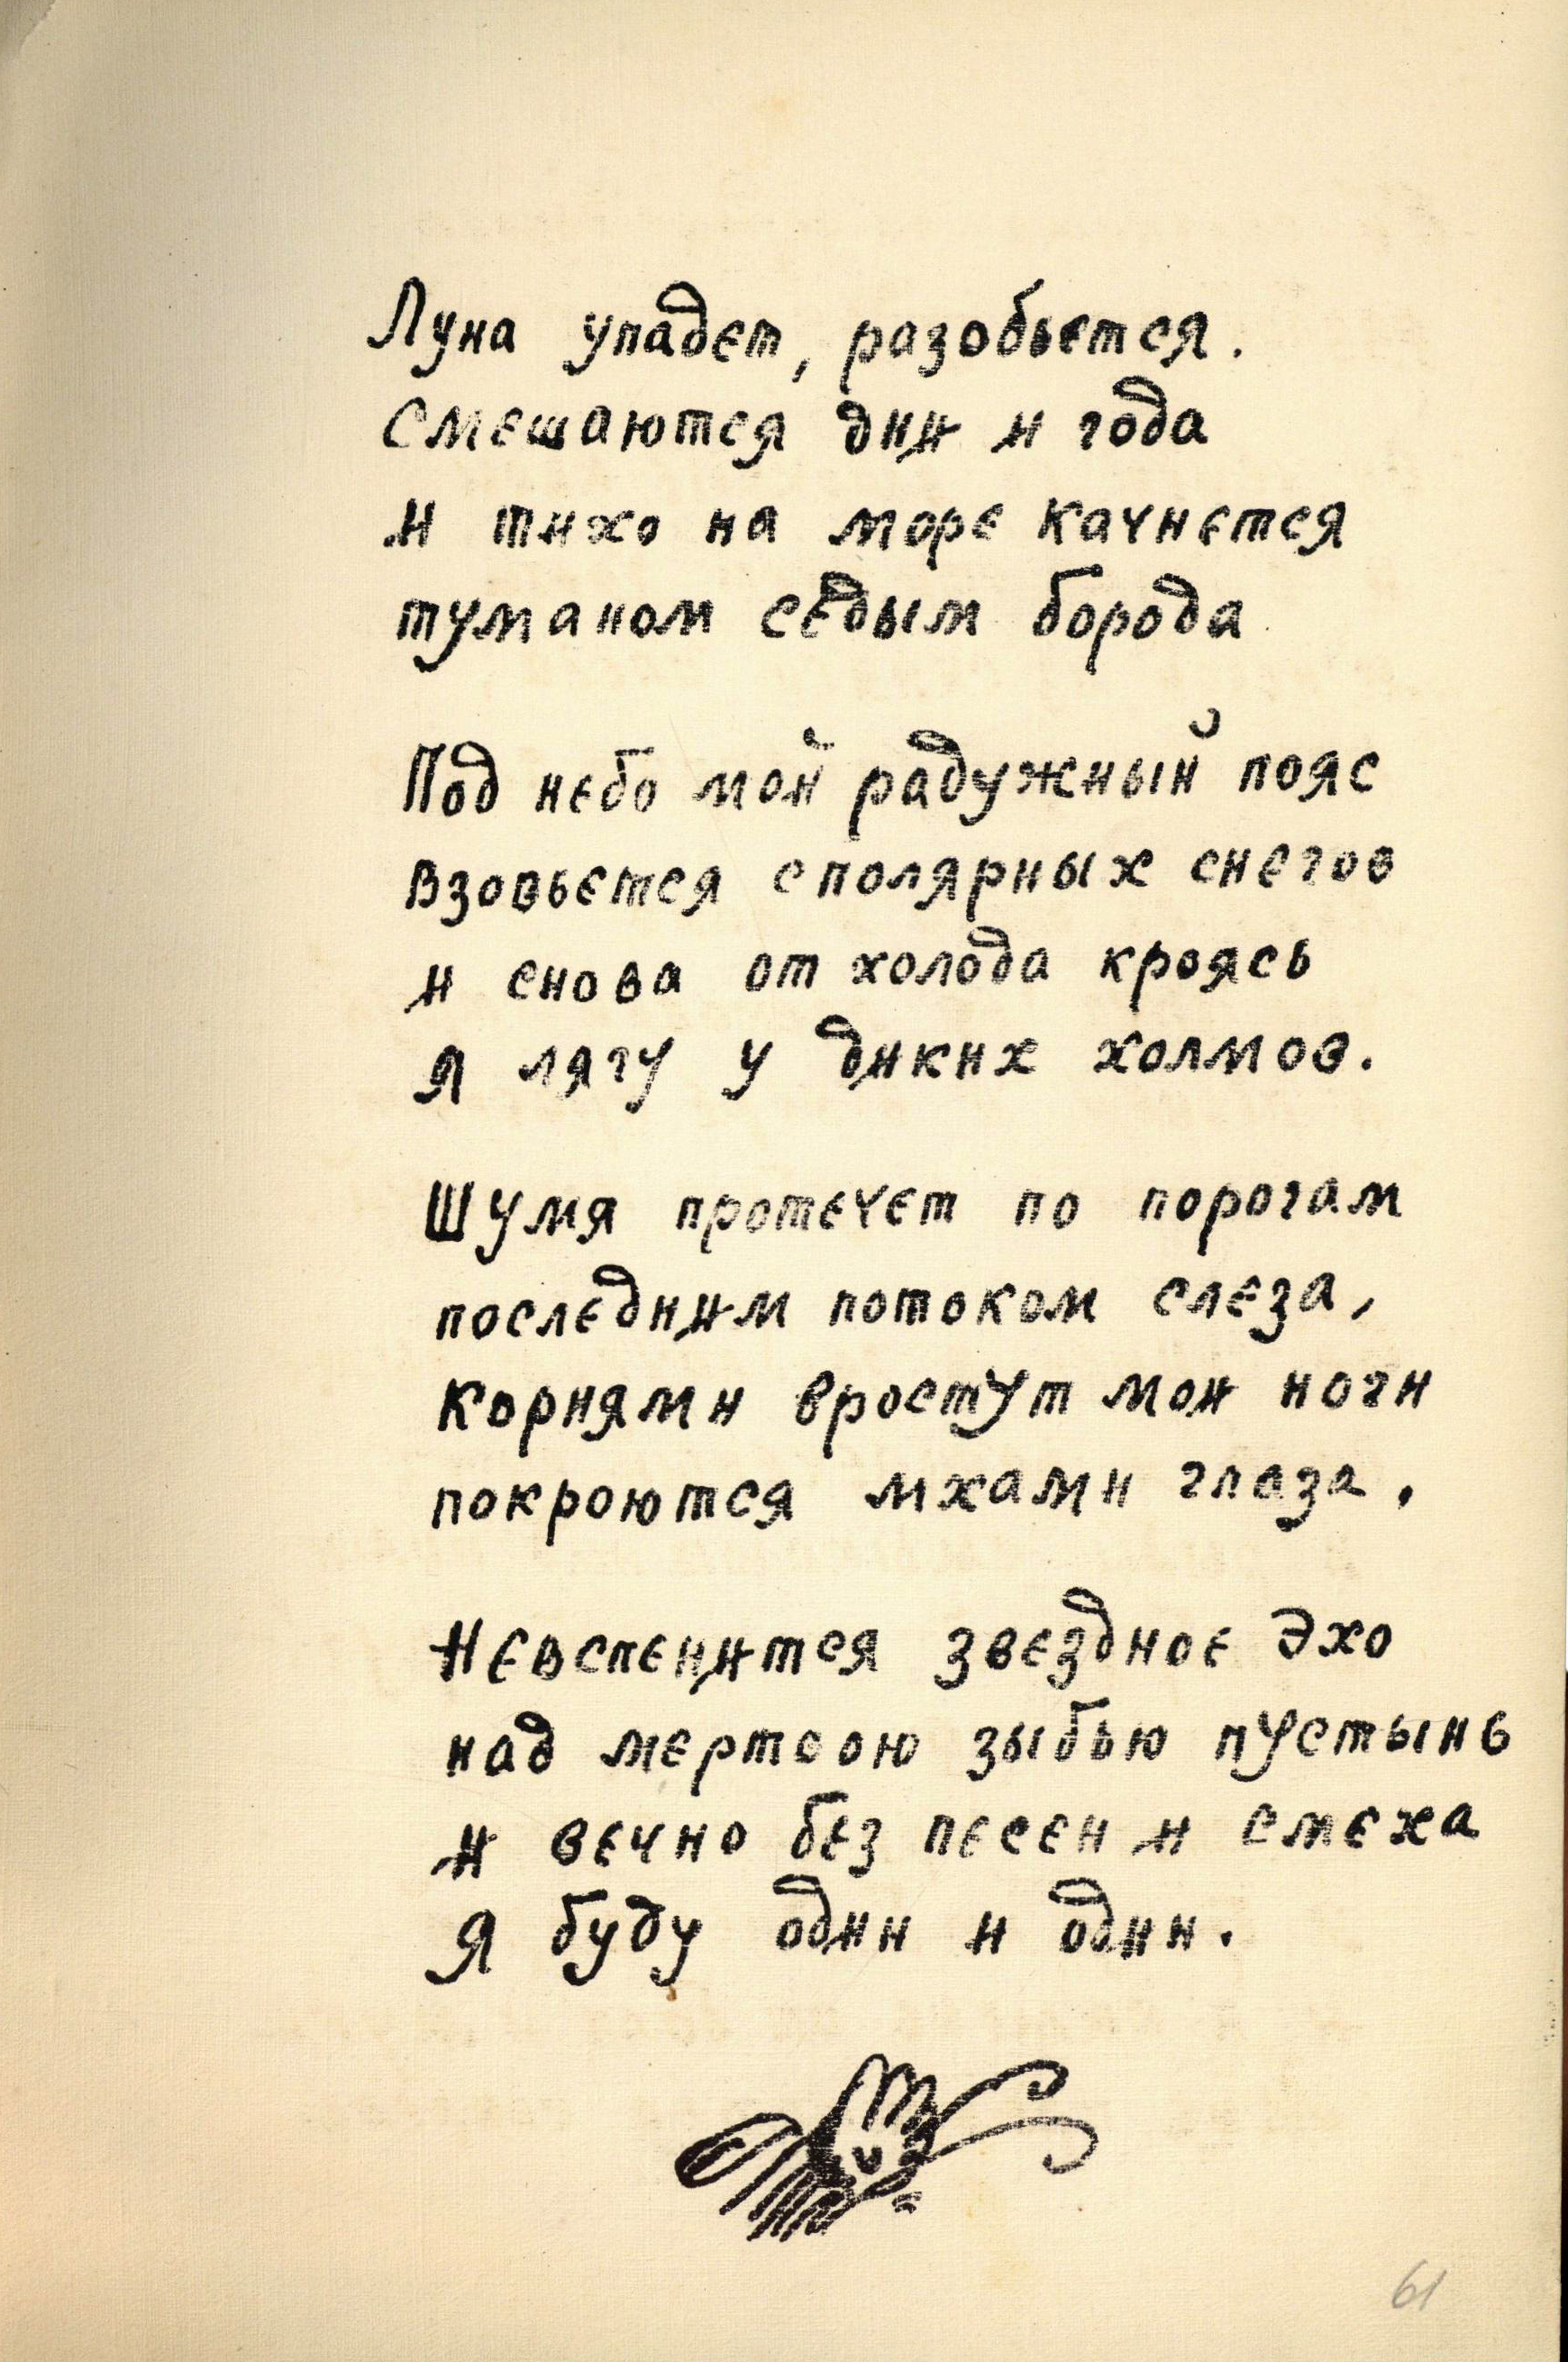 Луна упадет, разобьется.
Смешаются дни и года
и тихо на море качнется
туманом седым борода
Под небо мой радужный пояс
взовьется с полярных снегов
и снова от холода кроясь
я лягу у диких холмов.
Шумя протечет по порогам
последним потоком слеза,
корнями вростут мои ноги
покроются мхами глаза.
Невспенится звездное эхо
над мертвою зыбью пустынь
и вечно без песен и смеха
я буду один и один.
61